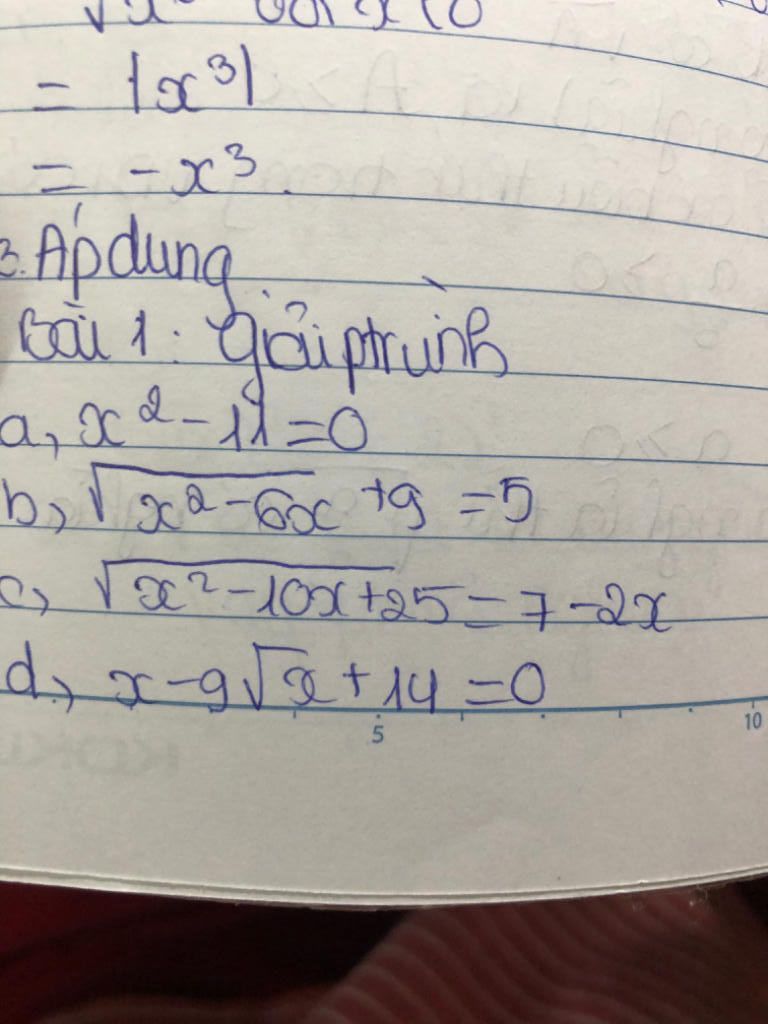 = |x³|
= -x³.
3. Áp dụng
Bài 1: Giải ptrình
a, x² - 11 = 0
b, √x² - 6x + 9 = 5
c, √x² - 10x + 25 = 7 - 2x
d, x - 9√x + 14 = 0
5 10